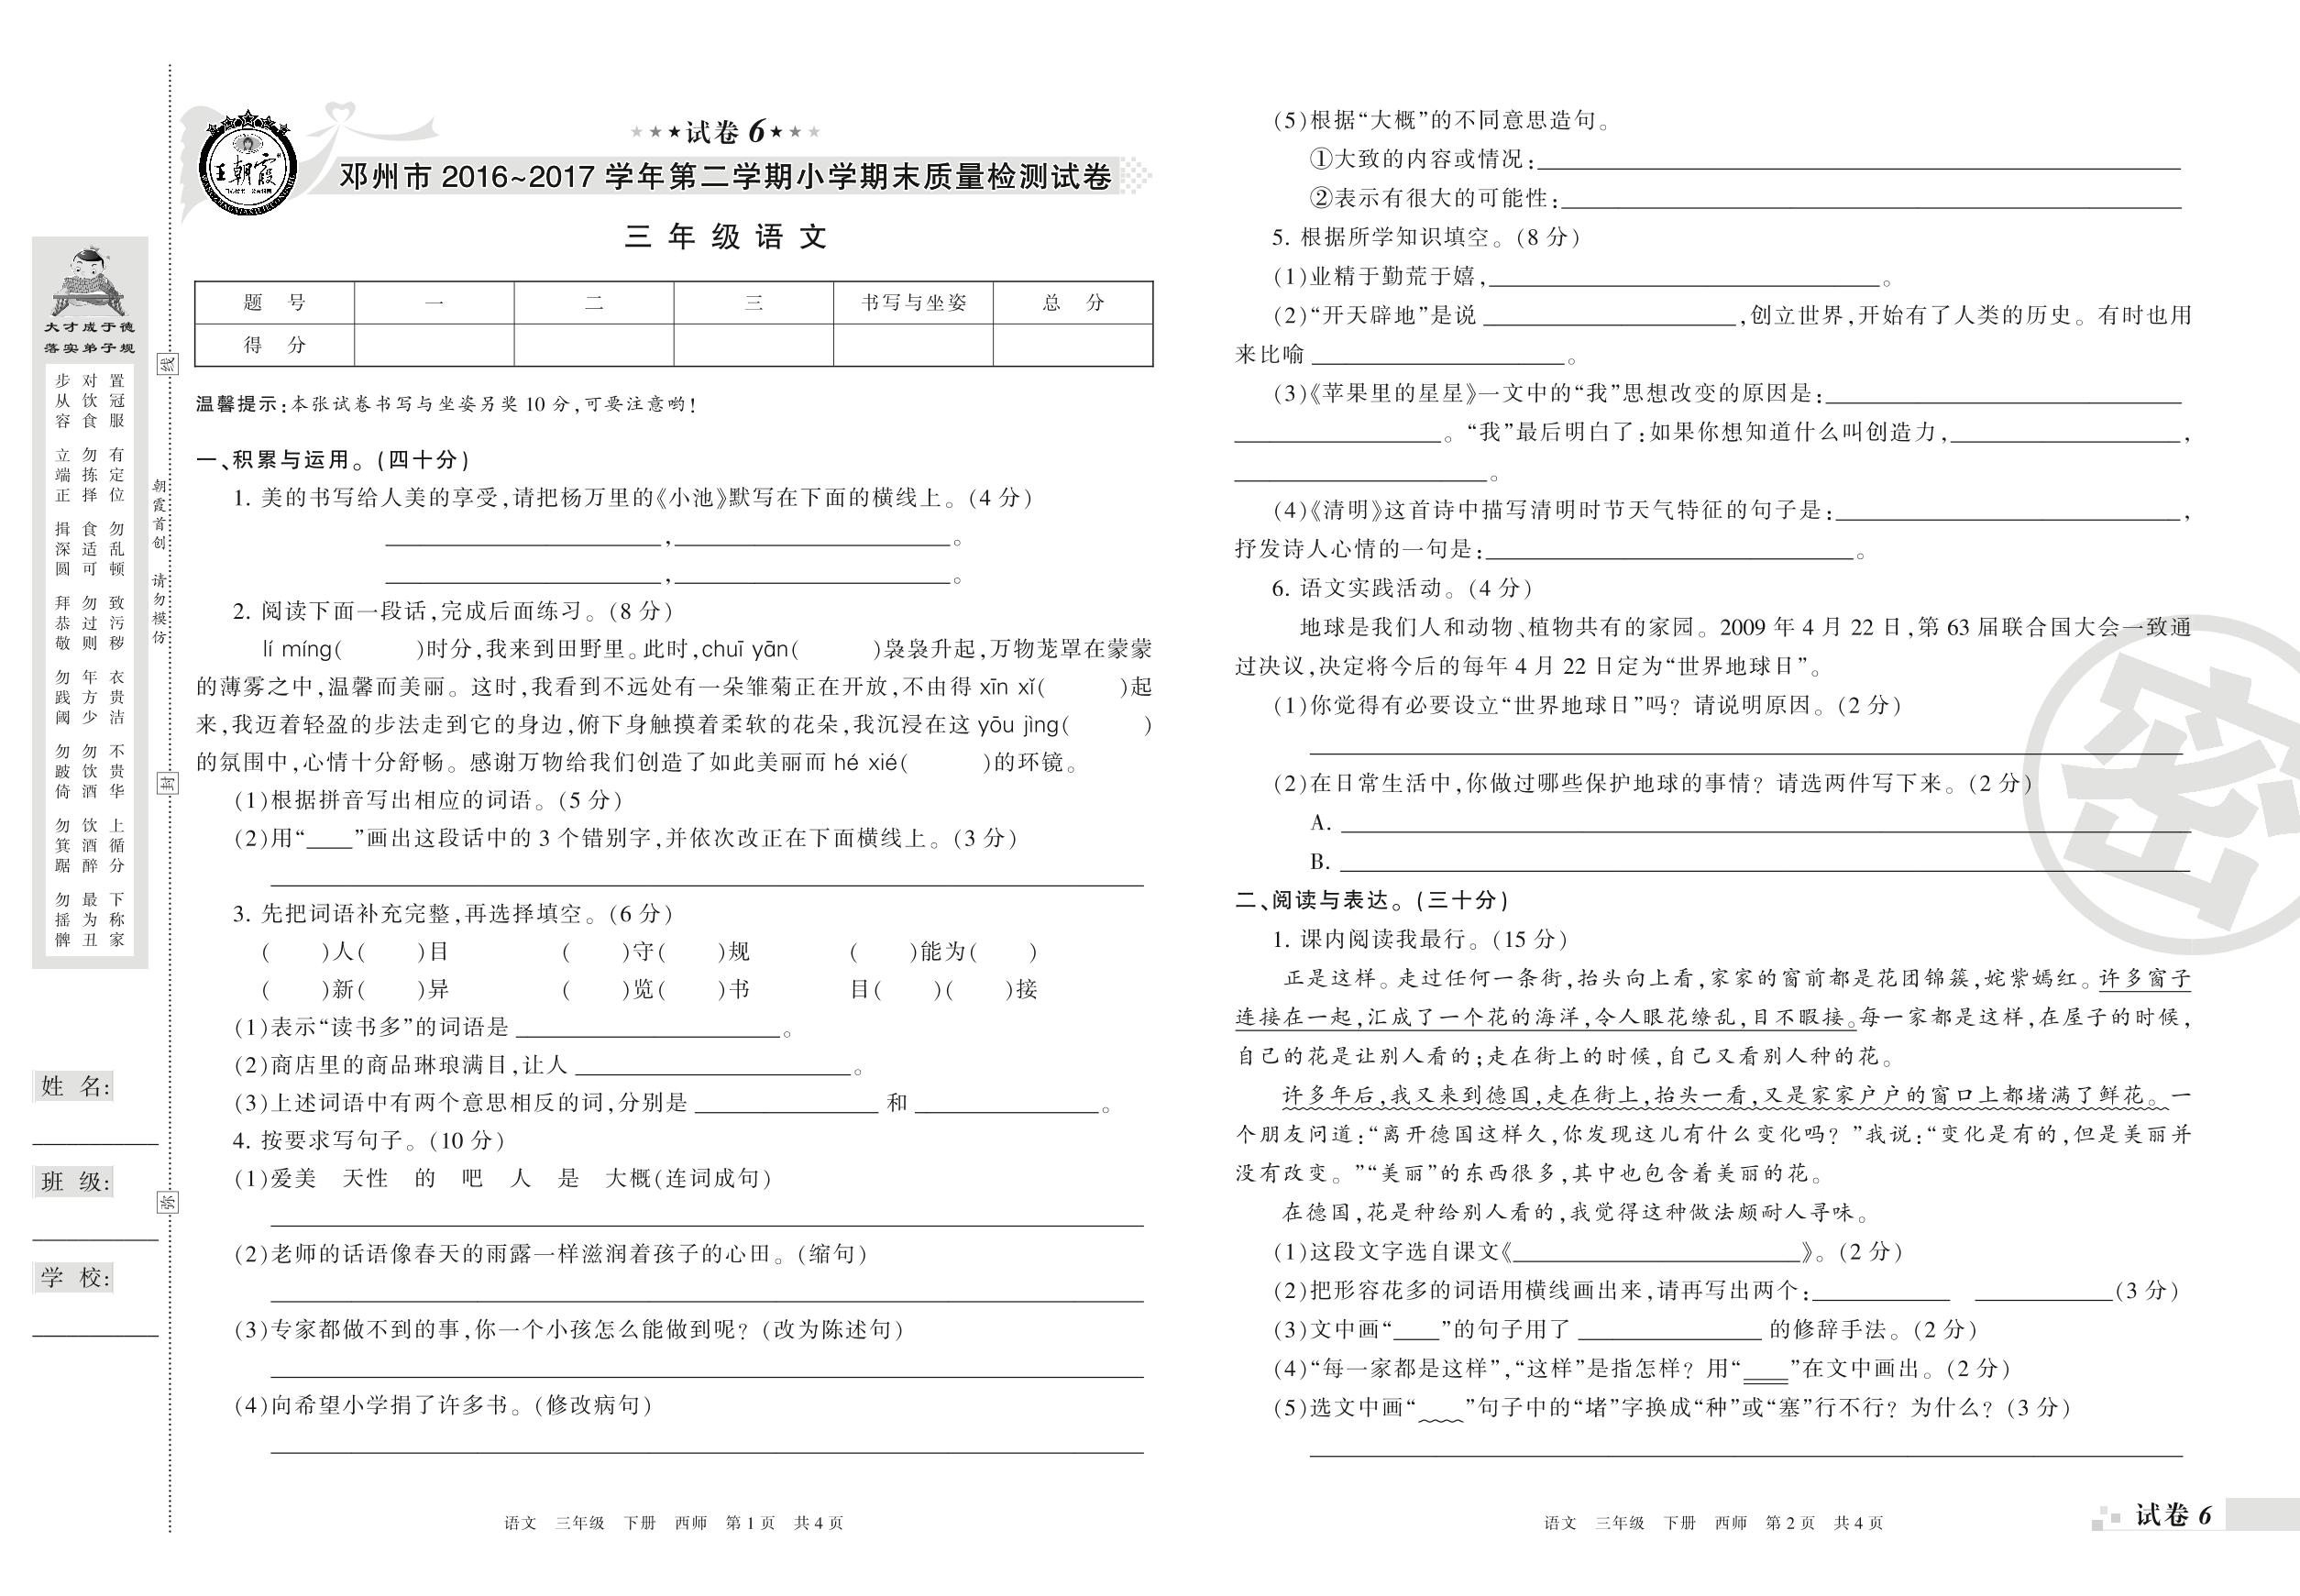 ★★★试卷 6★★★
王朝霞
邓州市 2016~2017 学年第二学期小学期末质量检测试卷
三 年 级 语 文
题 号 一 二 三 书写与坐姿 总 分
得 分
温馨提示:本张试卷书写与坐姿另奖 10 分,可要注意哟!
一、积累与运用。(四十分)
1. 美的书写给人美的享受,请把杨万里的《小池》默写在下面的横线上。(4 分)
____________,____________。
____________,____________。
2. 阅读下面一段话,完成后面练习。(8 分)
lí míng( )时分,我来到田野里。此时,chuī yān( )袅袅升起,万物茏罩在蒙蒙
的薄雾之中,温馨而美丽。这时,我看到不远处有一朵雏菊正在开放,不由得 xīn xǐ( )起
来,我迈着轻盈的步法走到它的身边,俯下身触摸着柔软的花朵,我沉浸在这 yōu jìng( )
的氛围中,心情十分舒畅。感谢万物给我们创造了如此美丽而 hé xié( )的环镜。
(1)根据拼音写出相应的词语。(5 分)
(2)用“____”画出这段话中的 3 个错别字,并依次改正在下面横线上。(3 分)
3. 先把词语补充完整,再选择填空。(6 分)
( )人( )目 ( )守( )规 ( )能为( )
( )新( )异 ( )览( )书 目( )( )接
(1)表示“读书多”的词语是____________。
(2)商店里的商品琳琅满目,让人____________。
(3)上述词语中有两个意思相反的词,分别是____________和____________。
4. 按要求写句子。(10 分)
(1)爱美 天性 的 吧 人 是 大概(连词成句)
(2)老师的话语像春天的雨露一样滋润着孩子的心田。(缩句)
(3)专家都做不到的事,你一个小孩怎么能做到呢?(改为陈述句)
(4)向希望小学捐了许多书。(修改病句)
语文 三年级 下册 西师 第 1 页 共 4 页
(5)根据“大概”的不同意思造句。
①大致的内容或情况:____________
②表示有很大的可能性:____________
5. 根据所学知识填空。(8 分)
(1)业精于勤荒于嬉,____________。
(2)“开天辟地”是说____________,创立世界,开始有了人类的历史。有时也用
来比喻____________。
(3)《苹果里的星星》一文中的“我”思想改变的原因是:____________
____________。“我”最后明白了:如果你想知道什么叫创造力,____________,
____________。
(4)《清明》这首诗中描写清明时节天气特征的句子是:____________,
抒发诗人心情的一句是:____________。
6. 语文实践活动。(4 分)
地球是我们人和动物、植物共有的家园。2009 年 4 月 22 日,第 63 届联合国大会一致通
过决议,决定将今后的每年 4 月 22 日定为“世界地球日”。
(1)你觉得有必要设立“世界地球日”吗?请说明原因。(2 分)
(2)在日常生活中,你做过哪些保护地球的事情?请选两件写下来。(2 分)
A.
B.
二、阅读与表达。(三十分)
1. 课内阅读我最行。(15 分)
正是这样。走过任何一条街,抬头向上看,家家的窗前都是花团锦簇,姹紫嫣红。许多窗子
连接在一起,汇成了一个花的海洋,令人眼花缭乱,目不暇接。每一家都是这样,在屋子的时候,
自己的花是让别人看的;走在街上的时候,自己又看别人种的花。
许多年后,我又来到德国,走在街上,抬头一看,又是家家户户的窗口上都堵满了鲜花。一
个朋友问道:“离开德国这样久,你发现这儿有什么变化吗?”我说:“变化是有的,但是美丽并
没有改变。”“美丽”的东西很多,其中也包含着美丽的花。
在德国,花是种给别人看的,我觉得这种做法颇耐人寻味。
(1)这段文字选自课文《____________》。(2 分)
(2)把形容花多的词语用横线画出来,请再写出两个:______ ______(3 分)
(3)文中画“____”的句子用了____________的修辞手法。(2 分)
(4)“每一家都是这样”,“这样”是指怎样?用“____”在文中画出。(2 分)
(5)选文中画“____”句子中的“堵”字换成“种”或“塞”行不行?为什么?(3 分)
语文 三年级 下册 西师 第 2 页 共 4 页
试卷 6
密
大才成于德
落实弟子规
置冠服 有定位 勿乱顿 致污秽 衣贵洁 不贵华 上循分 下称家
对饮食 勿拣择 食适可 勿过则 年方少 勿饮酒 饮酒醉 最为丑
步从容 立端正 揖深圆 拜恭敬 勿践阈 勿跛倚 勿箕踞 勿摇髀
朝霞首创 请勿模仿
线
封
弥
姓 名:
班 级:
学 校: